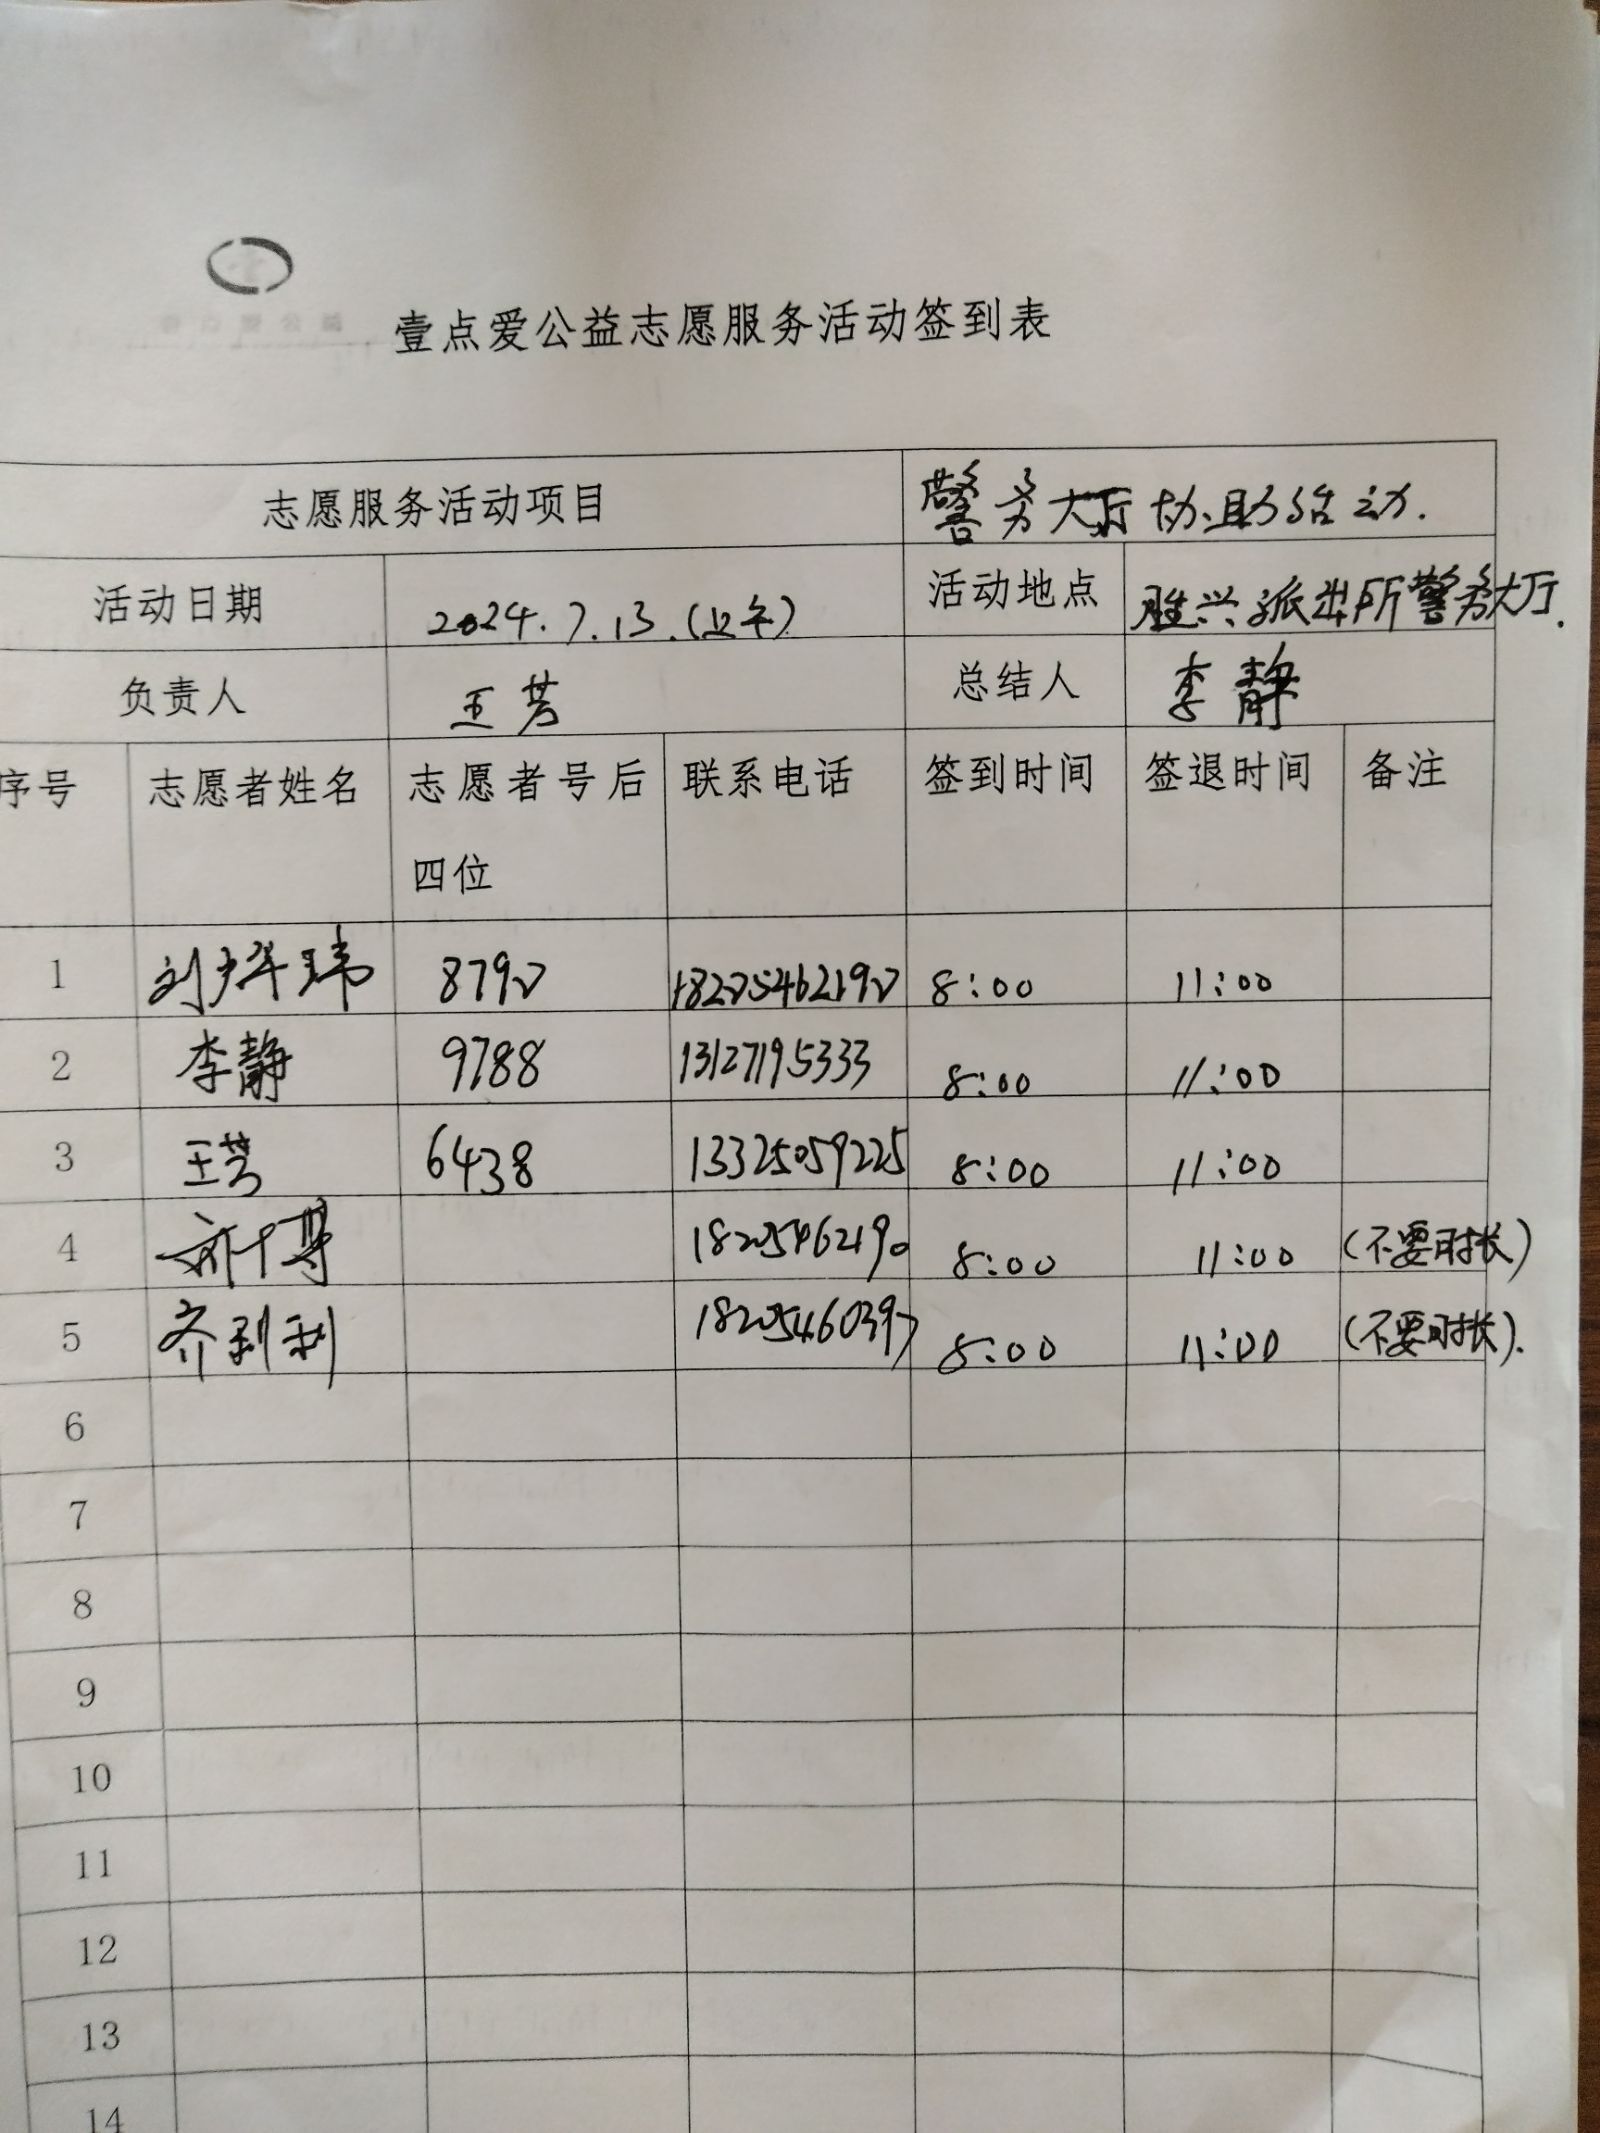 壹点爱公益志愿服务活动签到表
志愿服务活动项目 警务大厅协助活动.
活动日期 2024.7.13.(上午) 活动地点 胜兴派出所警务大厅.
负责人 王芳 总结人 李静
序号 志愿者姓名 志愿者号后四位 联系电话 签到时间 签退时间 备注
1 刘 8:00 11:00
2 李静 9788 13127195333 8:00 11:00
3 王芳 6438 13325059225 8:00 11:00
4 18205462190 8:00 11:00 (不要时长)
5 齐利 8:00 11:00 (不要时长).
6
7
8
9
10
11
12
13
14